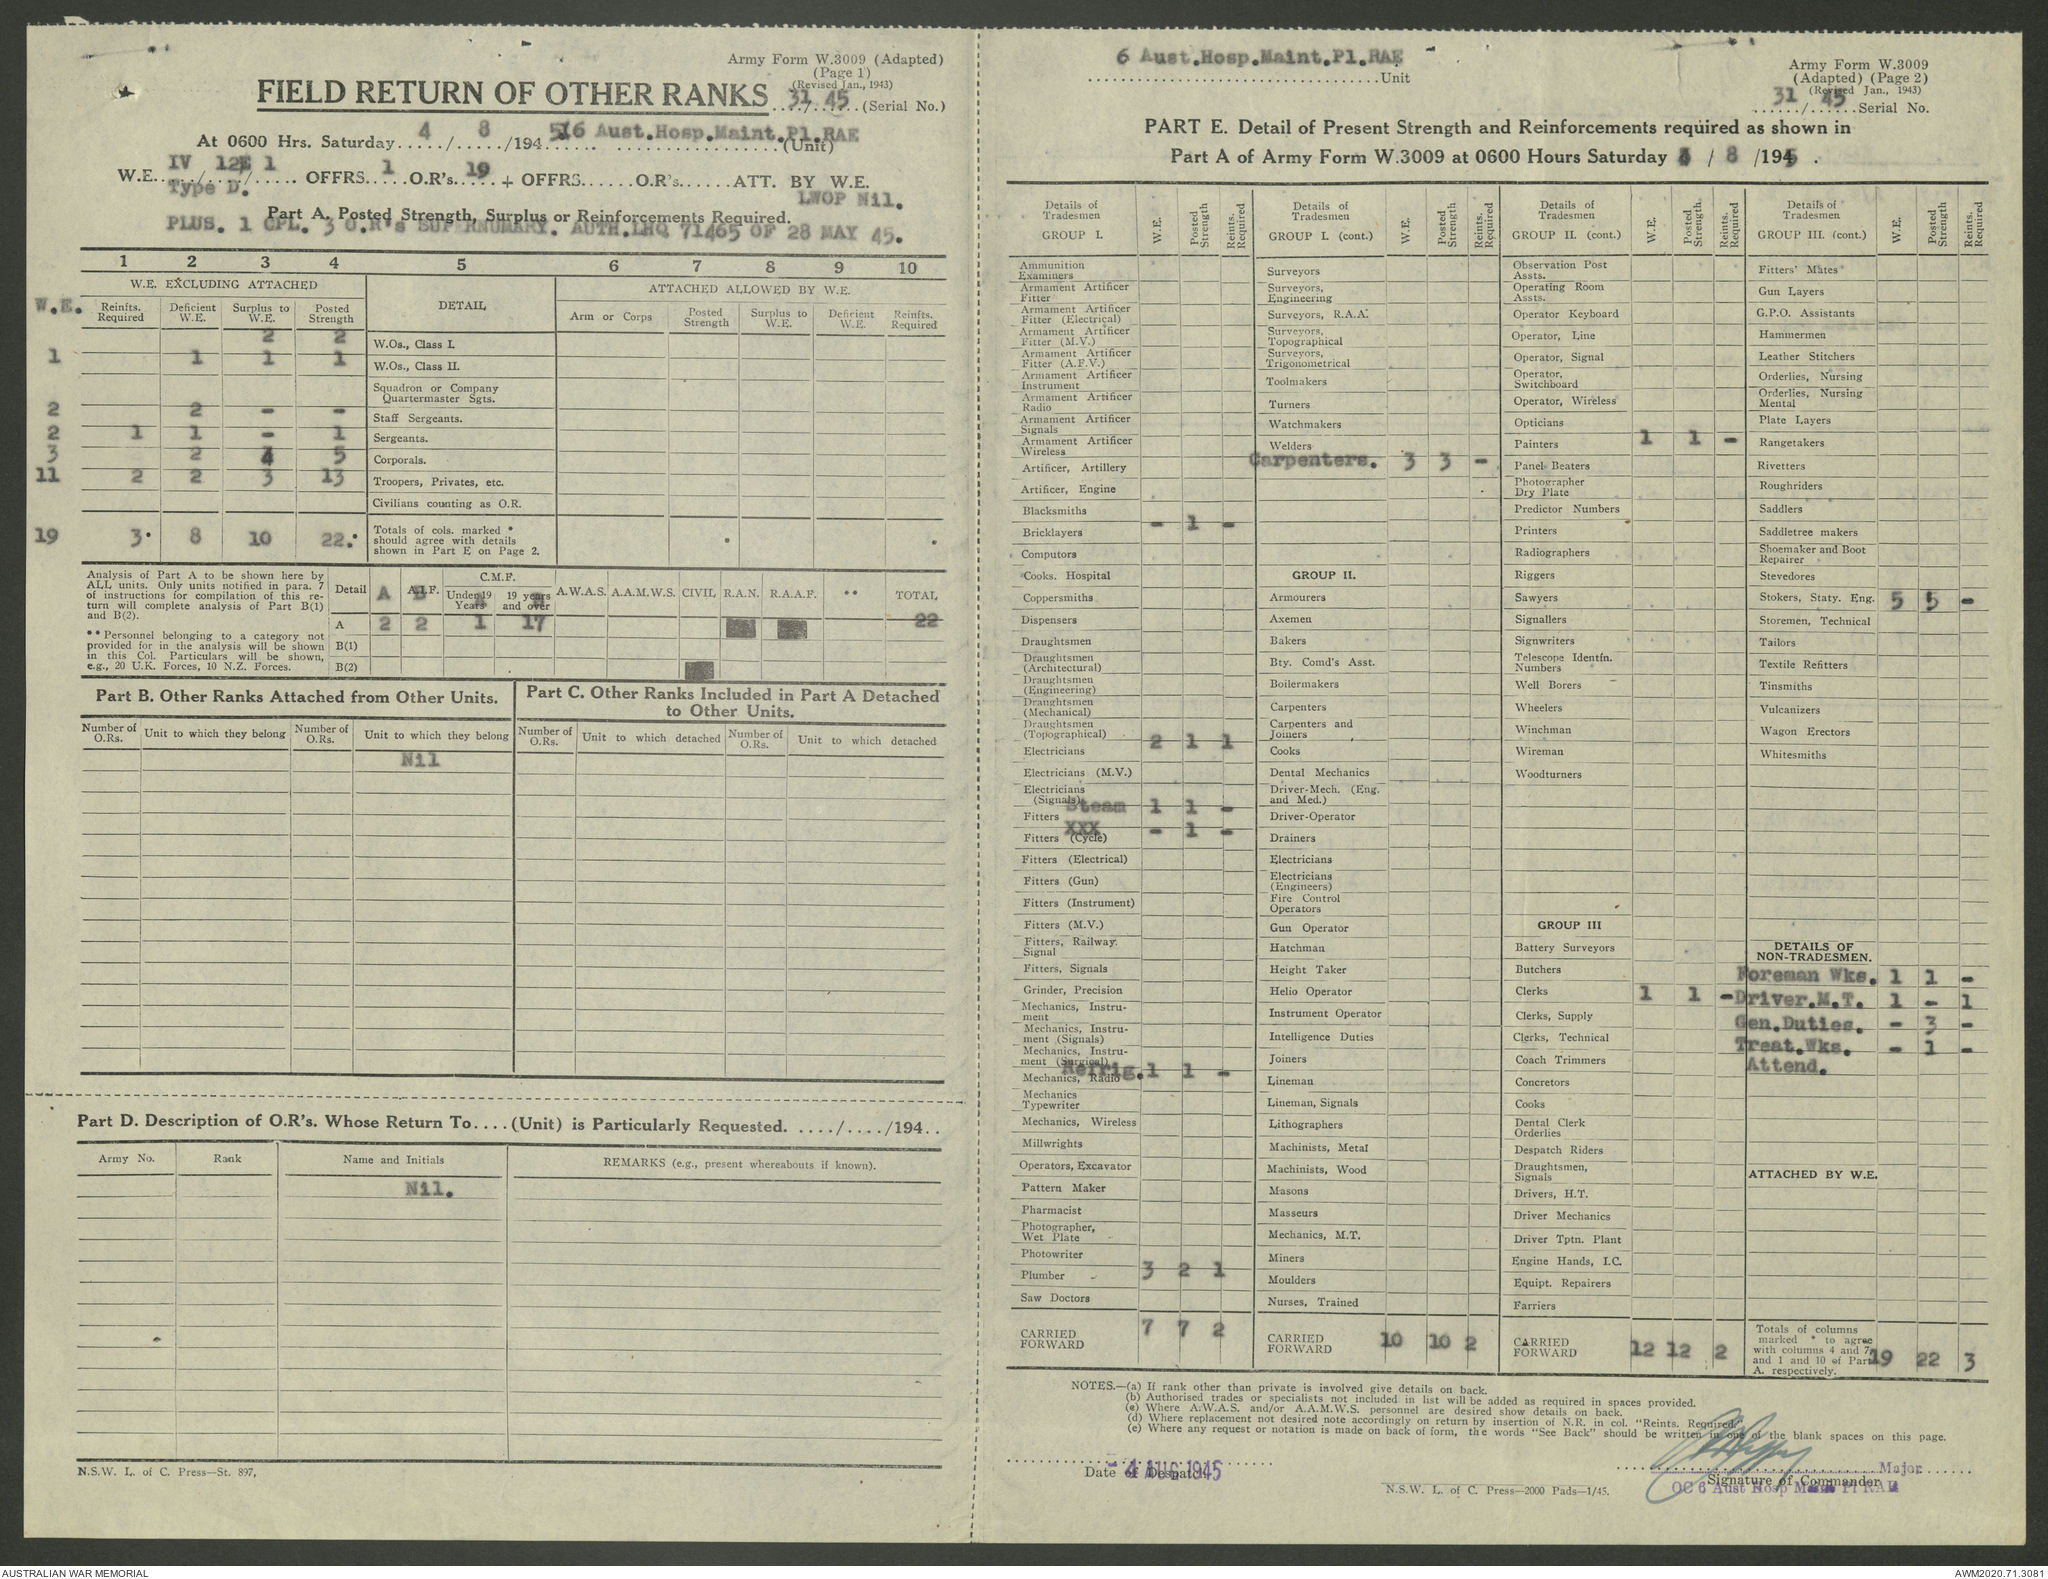 Army Form W.3009 (Adapted)
(Page 1)
(Revised Jan., 1943)
FIELD RETURN OF OTHER RANKS 31/45 (Serial No.)
At 0600 Hrs. Saturday 4 / 8 /1945 6 Aust.Hosp.Maint.Pl.RAE (Unit)
W.E. IV / 12E / 1 OFFRS. 1 O.R's. 19 + OFFRS...... O.R's...... ATT. BY W.E.
Type D. LWOP Nil.
Part A. Posted Strength, Surplus or Reinforcements Required.
PLUS. 1 CPL. 3 O.R's SUPERNUMARY. AUTH.LHQ 71465 OF 28 MAY 45.
1 2 3 4 5 6 7 8 9 10
W.E. EXCLUDING ATTACHED DETAIL ATTACHED ALLOWED BY W.E.
W.E. Reinfts. Required Deficient W.E. Surplus to W.E. Posted Strength Arm or Corps Posted Strength Surplus to W.E. Deficient W.E. Reinfts. Required
2 2 W.Os., Class I.
1 1 1 1 W.Os., Class II.
Squadron or Company Quartermaster Sgts.
2 2 - - Staff Sergeants.
2 1 1 - 1 Sergeants.
3 2 4 5 Corporals.
11 2 2 3 13 Troopers, Privates, etc.
Civilians counting as O.R.
19 3* 8 10 22.* Totals of cols. marked * should agree with details shown in Part E on Page 2.
Analysis of Part A to be shown here by
ALL units. Only units notified in para. 7
of instructions for compilation of this re-
turn will complete analysis of Part B(1)
and B(2).
** Personnel belonging to a category not
provided for in the analysis will be shown
in this Col. Particulars will be shown,
e.g., 20 U.K. Forces, 10 N.Z. Forces.
Detail A A.I.F. C.M.F. Under 19 Years 19 years and over A.W.A.S. A.A.M.W.S. CIVIL R.A.N. R.A.A.F. ** TOTAL
A 2 2 1 17 22
B(1)
B(2)
Part B. Other Ranks Attached from Other Units.
Number of O.Rs. Unit to which they belong Number of O.Rs. Unit to which they belong
Nil
Part C. Other Ranks Included in Part A Detached
to Other Units.
Number of O.Rs. Unit to which detached Number of O.Rs. Unit to which detached
Part D. Description of O.R's. Whose Return To....(Unit) is Particularly Requested. ..../..../194..
Army No. Rank Name and Initials REMARKS (e.g., present whereabouts if known).
Nil.
N.S.W. L. of C. Press—St. 897,
6 Aust.Hosp.Maint.Pl.RAE
Unit
Army Form W.3009
(Adapted) (Page 2)
(Revised Jan., 1943)
31/45 Serial No.
PART E. Detail of Present Strength and Reinforcements required as shown in
Part A of Army Form W.3009 at 0600 Hours Saturday 4 / 8 /1945 .
Details of Tradesmen GROUP I. W.E. Posted Strength Reints. Required
Ammunition Examiners
Armament Artificer Fitter
Armament Artificer Fitter (Electrical)
Armament Artificer Fitter (M.V.)
Armament Artificer Fitter (A.F.V.)
Armament Artificer Instrument
Armament Artificer Radio
Armament Artificer Signals
Armament Artificer Wireless
Artificer, Artillery
Artificer, Engine
Blacksmiths
Bricklayers - 1 -
Computors
Cooks. Hospital
Coppersmiths
Dispensers
Draughtsmen
Draughtsmen (Architectural)
Draughtsmen (Engineering)
Draughtsmen (Mechanical)
Draughtsmen (Topographical)
Electricians 2 1 1
Electricians (M.V.)
Electricians (Signals)
Fitters Steam 1 1 -
Fitters (Cycle) XXX - 1 -
Fitters (Electrical)
Fitters (Gun)
Fitters (Instrument)
Fitters (M.V.)
Fitters, Railway. Signal
Fitters, Signals
Grinder, Precision
Mechanics, Instru- ment
Mechanics, Instru- ment (Signals)
Mechanics, Instru- ment (Surgical)
Mechanics, Radio Refrig. 1 1 -
Mechanics Typewriter
Mechanics, Wireless
Millwrights
Operators, Excavator
Pattern Maker
Pharmacist
Photographer, Wet Plate
Photowriter
Plumber 3 2 1
Saw Doctors
CARRIED FORWARD 7 7 2
Details of Tradesmen GROUP I. (cont.) W.E. Posted Strength Reints. Required
Surveyors
Surveyors, Engineering
Surveyors, R.A.A.
Surveyors, Topographical
Surveyors, Trigonometrical
Toolmakers
Turners
Watchmakers
Welders
Carpenters. 3 3 -
GROUP II.
Armourers
Axemen
Bakers
Bty. Comd's Asst.
Boilermakers
Carpenters
Carpenters and Joiners
Cooks
Dental Mechanics
Driver-Mech. (Eng. and Med.)
Driver-Operator
Drainers
Electricians
Electricians (Engineers)
Fire Control Operators
Gun Operator
Hatchman
Height Taker
Helio Operator
Instrument Operator
Intelligence Duties
Joiners
Lineman
Lineman, Signals
Lithographers
Machinists, Metal
Machinists, Wood
Masons
Masseurs
Mechanics, M.T.
Miners
Moulders
Nurses, Trained
CARRIED FORWARD 10 10 2
Details of Tradesmen GROUP II. (cont.) W.E. Posted Strength Reints. Required
Observation Post Assts.
Operating Room Assts.
Operator Keyboard
Operator, Line
Operator, Signal
Operator, Switchboard
Operator, Wireless
Opticians
Painters 1 1 -
Panel Beaters
Photographer Dry Plate
Predictor Numbers
Printers
Radiographers
Riggers
Sawyers
Signallers
Signwriters
Telescope Identfn. Numbers
Well Borers
Wheelers
Winchman
Wireman
Woodturners
GROUP III
Battery Surveyors
Butchers
Clerks 1 1 -
Clerks, Supply
Clerks, Technical
Coach Trimmers
Concretors
Cooks
Dental Clerk Orderlies
Despatch Riders
Draughtsmen, Signals
Drivers, H.T.
Driver Mechanics
Driver Tptn. Plant
Engine Hands, I.C.
Equipt. Repairers
Farriers
CARRIED FORWARD 12 12 2
Details of Tradesmen GROUP III. (cont.) W.E. Posted Strength Reints. Required
Fitters' Mates
Gun Layers
G.P.O. Assistants
Hammermen
Leather Stitchers
Orderlies, Nursing
Orderlies, Nursing Mental
Plate Layers
Rangetakers
Rivetters
Roughriders
Saddlers
Saddletree makers
Shoemaker and Boot Repairer
Stevedores
Stokers, Staty. Eng. 5 5 -
Storemen, Technical
Tailors
Textile Refitters
Tinsmiths
Vulcanizers
Wagon Erectors
Whitesmiths
DETAILS OF NON-TRADESMEN.
Foreman Wks. 1 1 -
Driver.M.T. 1 - 1
Gen.Duties. - 3 -
Treat.Wks. - 1 -
Attend.
ATTACHED BY W.E.
Totals of columns marked * to agree with columns 4 and 7, and 1 and 10 of Part A. respectively. 19 22 3
NOTES.—(a) If rank other than private is involved give details on back.
(b) Authorised trades or specialists not included in list will be added as required in spaces provided.
(c) Where A.W.A.S. and/or A.A.M.W.S. personnel are desired show details on back.
(d) Where replacement not desired note accordingly on return by insertion of N.R. in col. "Reints. Required."
(e) Where any request or notation is made on back of form, the words "See Back" should be written in one of the blank spaces on this page.
- 4 AUG 1945
Date of Despatch
Major
Signature of Commander
OC 6 Aust Hosp Maint Pl RAE
N.S.W. L. of C. Press—2000 Pads—1/45.
AUSTRALIAN WAR MEMORIAL
AWM2020.71.3081